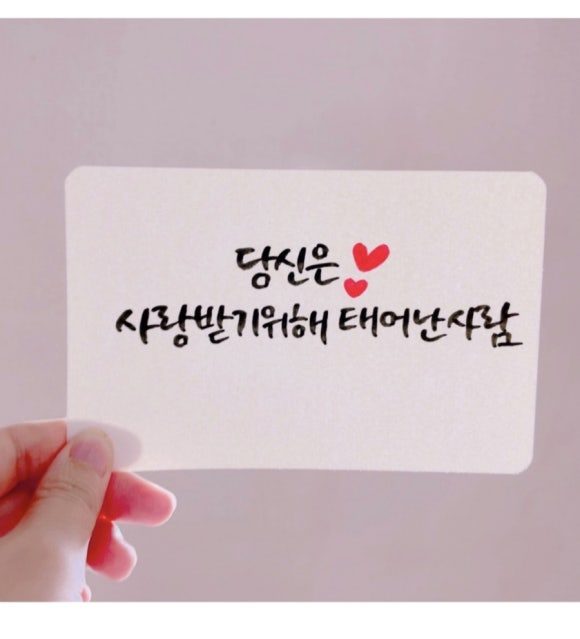 당신은
사랑받기위해 태어난사람